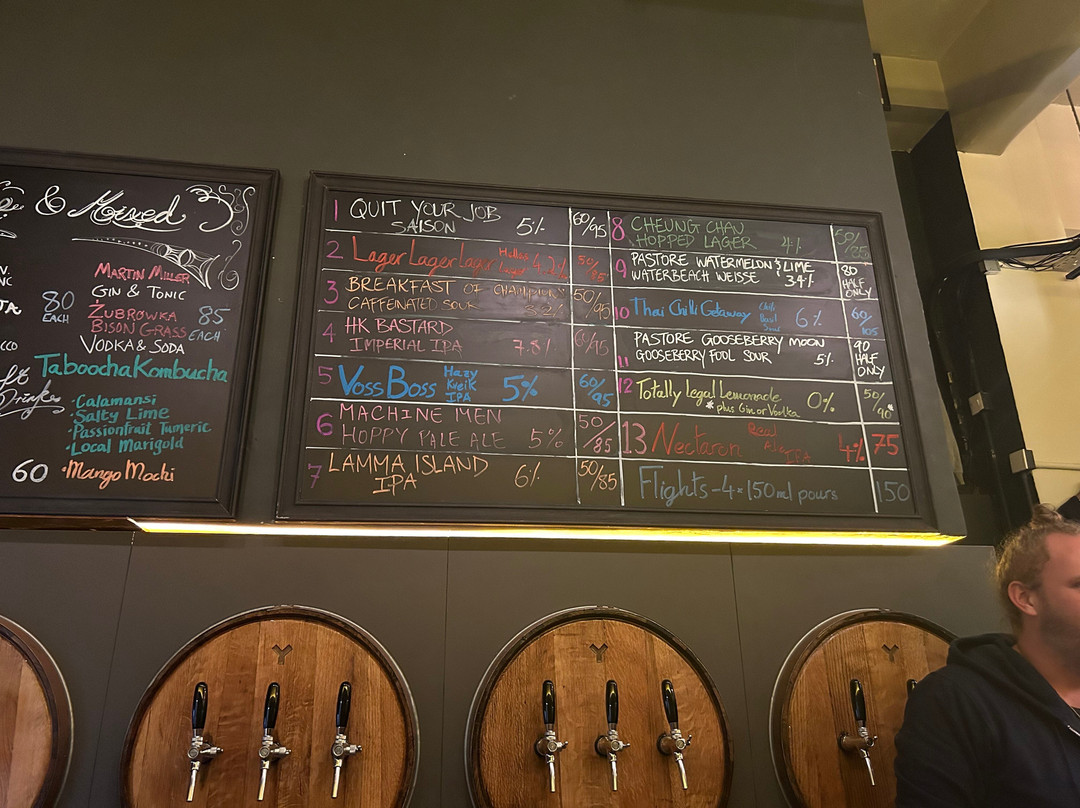 & Mixed
MARTIN MILLER
GIN & TONIC
80
EACH
ŻUBROWKA
85
BISON GRASS
EACH
VODKA & SODA
Taboocha Kombucha
Drinks
• Calamansi
• Salty Lime
• Passionfruit Tumeric
• Local Marigold
60
• Mango Mochi
1 QUIT YOUR JOB
SAISON 5% 60/95
2 Lager Lager Lager Helles Lager 4.2% 50/85
3 BREAKFAST OF CHAMPIONS
CAFFEINATED SOUR 50/95
4 HK BASTARD
IMPERIAL IPA 7.8%
5 Voss Boss Hazy Kveik IPA 5% 60/95
6 MACHINE MEN
HOPPY PALE ALE 5% 50/85
7 LAMMA ISLAND
IPA 6% 50/85
8 CHEUNG CHAU
HOPPED LAGER 4% 50/85
9 PASTORE WATERMELON & LIME
WATERBEACH WEISSE 3.4% 80 HALF ONLY
10 Thai Chilli Getaway Chilli Basil Sour 6% 60/105
PASTORE GOOSEBERRY MOON
11 GOOSEBERRY FOOL SOUR 5% 90 HALF ONLY
12 Totally legal Lemonade 0% 50/90*
*plus Gin or Vodka
13 Nectaron 4% 75
Flights - 4 x 150ml pours 150